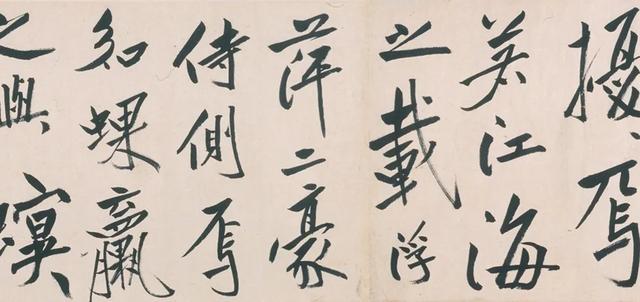 擾〻焉
若江海
之載浮
萍二豪
侍側焉
如蜾蠃
之與螟